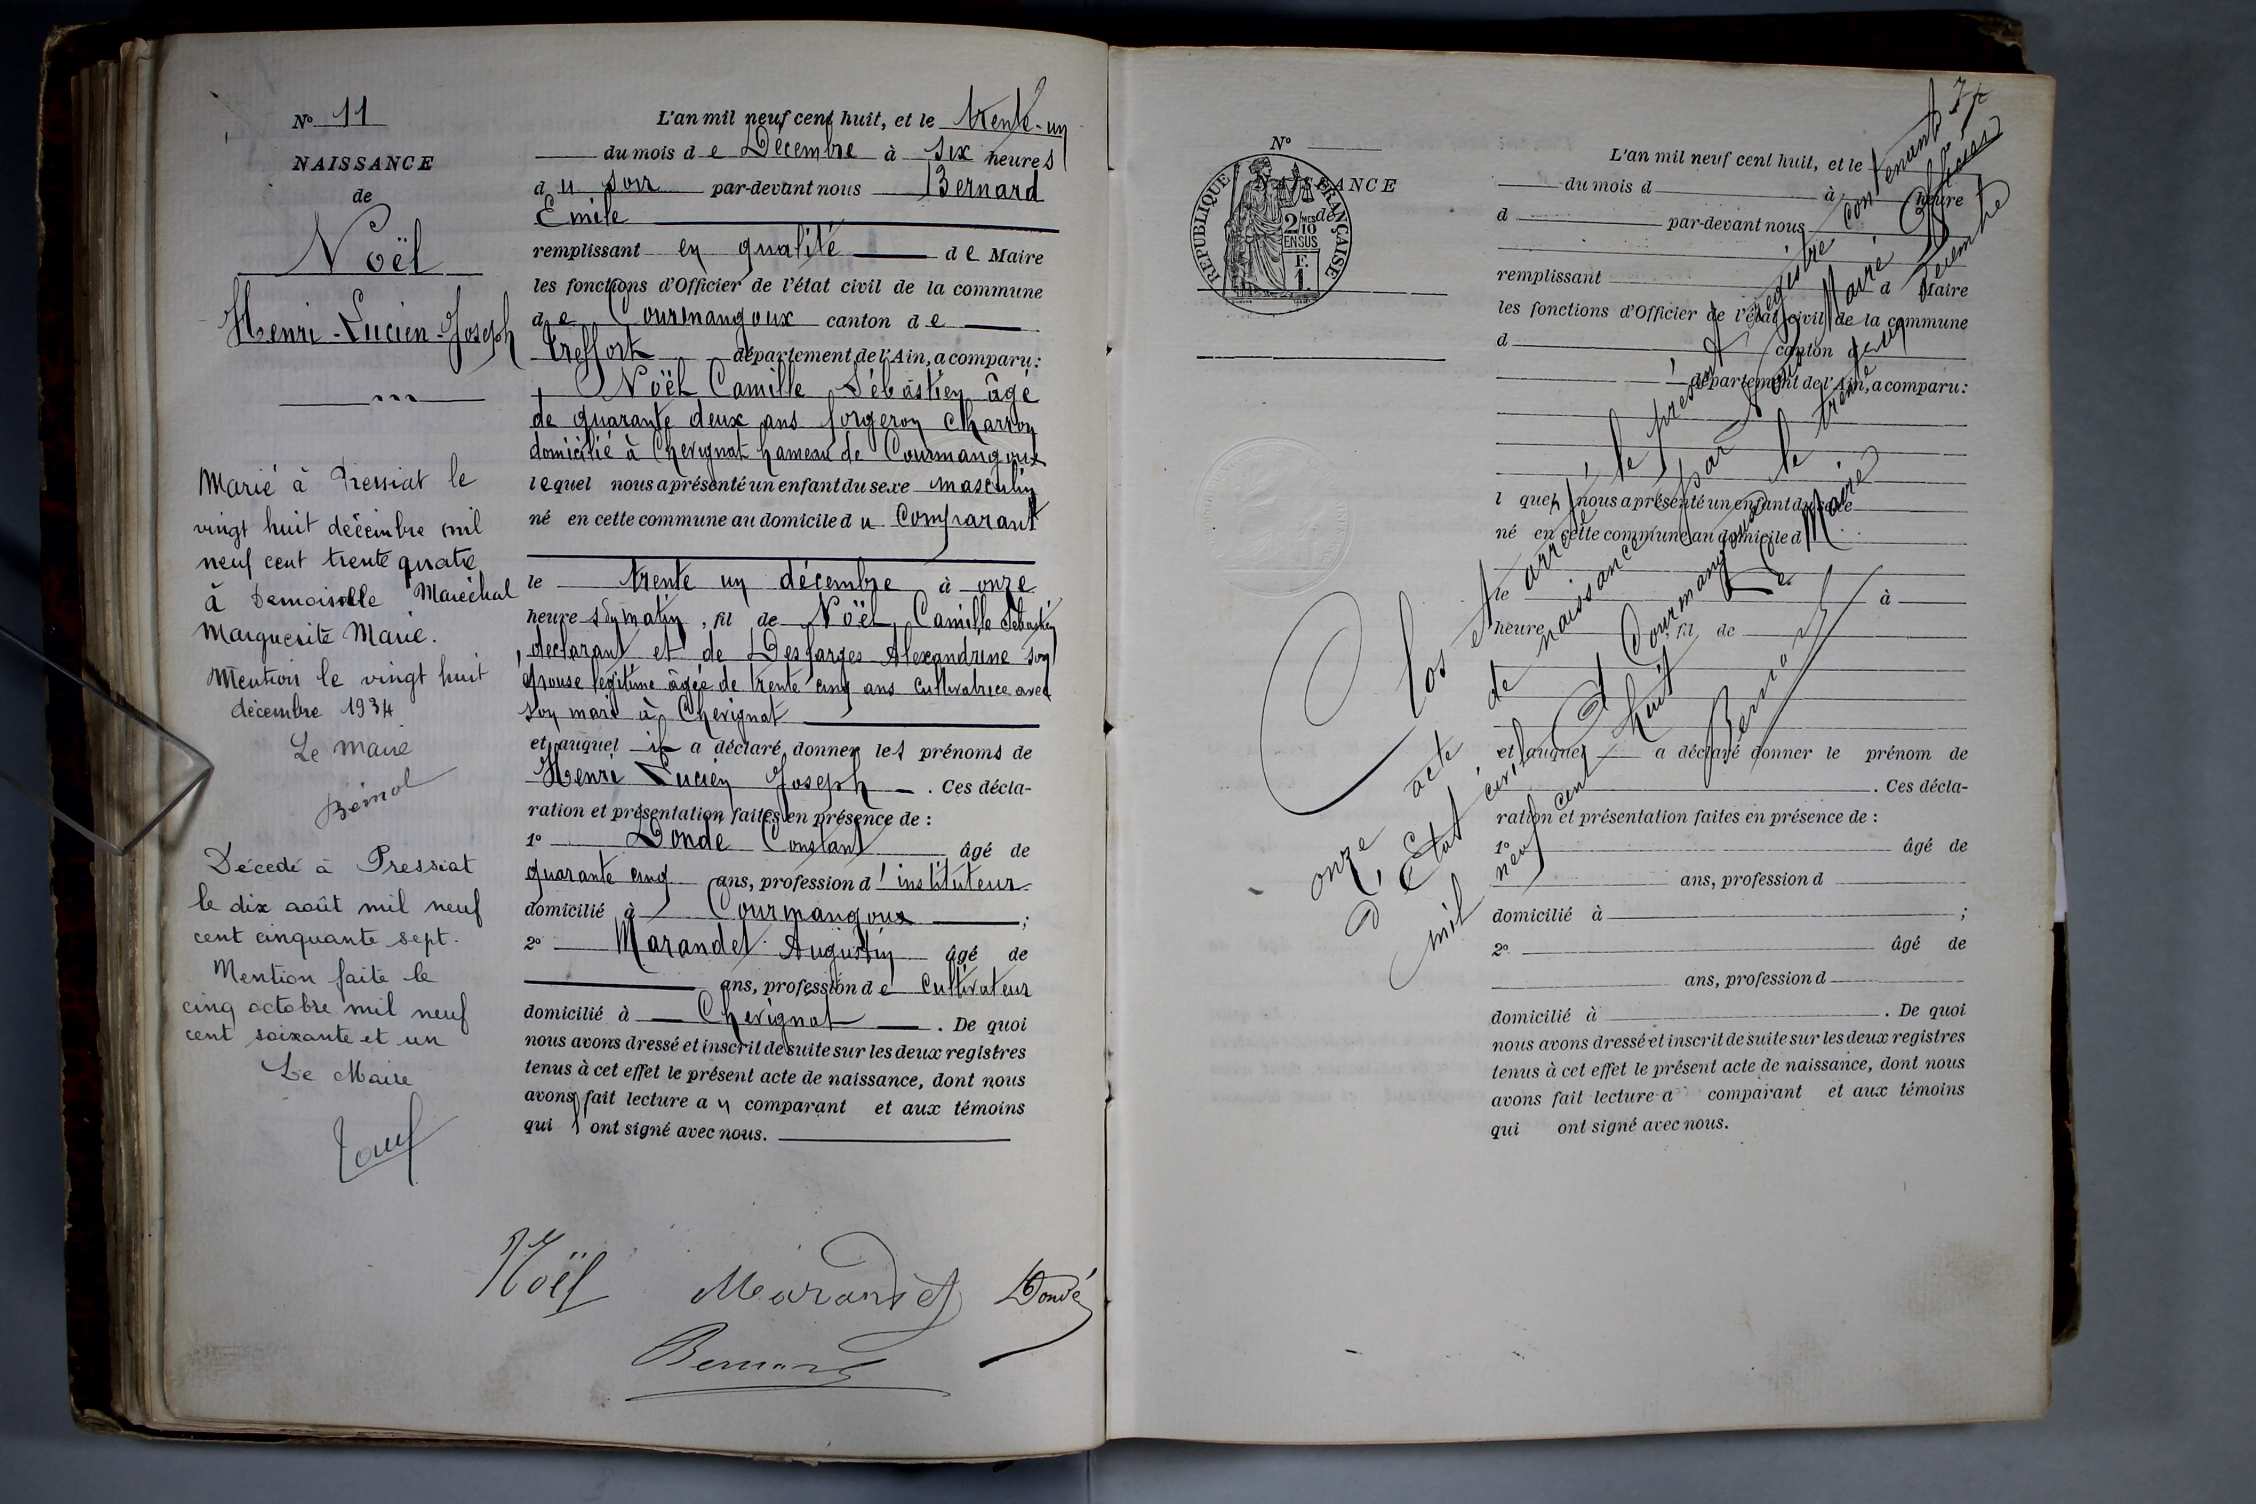 N° 11
NAISSANCE
de
Noël
Henri-Lucien-Joseph
Marié à Pressiat le
vingt huit décembre mil
neuf cent trente quatre
à Demoiselle Maréchal
Marguerite Marie.
Mention le vingt huit
décembre 1934
Le maire
Décédé à Pressiat
le dix août mil neuf
cent cinquante sept.
Mention faite le
cinq octobre mil neuf
cent soixante et un
Le Maire
L'an mil neuf cent huit, et le trente-un
du mois de Décembre à six heures
du soir par-devant nous Bernard
Emile
remplissant en qualité de Maire
les fonctions d'Officier de l'état civil de la commune
de Courmangoux canton de
Treffort département de l'Ain, a comparu:
Noël Camille Sébastien âgé
de quarante deux ans forgeron charron
domicilié à Chevignat hameau de Courmangoux
lequel nous a présenté un enfant du sexe masculin
né en cette commune au domicile du Comparant
le trente un décembre à onze
heures du matin, fil de Noël Camille Sébastien
déclarant et de Desfarges Alexandrine son
épouse légitime âgée de trente cinq ans cultivatrice avec
son mari à Chevignat
et auquel il a déclaré donner les prénoms de
Henri Lucien Joseph. Ces décla-
ration et présentation faites en présence de:
1° Dondé Constant âgé de
quarante cinq ans, profession d'instituteur
domicilié à Courmangoux;
2° Marandet Augustin âgé de
ans, profession de cultivateur
domicilié à Chevignat. De quoi
nous avons dressé et inscrit de suite sur les deux registres
tenus à cet effet le présent acte de naissance, dont nous
avons fait lecture au comparant et aux témoins
qui ont signé avec nous.
Noël Marandet Dondé
Bernard
N°
NAISSANCE
de
REPUBLIQUE FRANÇAISE
2 MES
10
EN SUS
F.
1.
L'an mil neuf cent huit, et le
du mois d à heure
d par-devant nous
remplissant d Maire
les fonctions d'Officier de l'état civil de la commune
d canton d
département de l'Ain, a comparu:
l quel nous a présenté un enfant du sexe
né en cette commune au domicile d
le à
heure, fil de
et auquel a déclaré donner le prénom de
. Ces décla-
ration et présentation faites en présence de:
1° âgé de
ans, profession d
domicilié à ;
2° âgé de
ans, profession d
domicilié à . De quoi
nous avons dressé et inscrit de suite sur les deux registres
tenus à cet effet le présent acte de naissance, dont nous
avons fait lecture a comparant et aux témoins
qui ont signé avec nous.
Clos et arrêté le présent registre contenant
onze acte de naissance par Nous Maire Officier
d'Etat civil de Courmangoux le trente un Décembre
mil neuf cent huit
Le Maire
Bernard